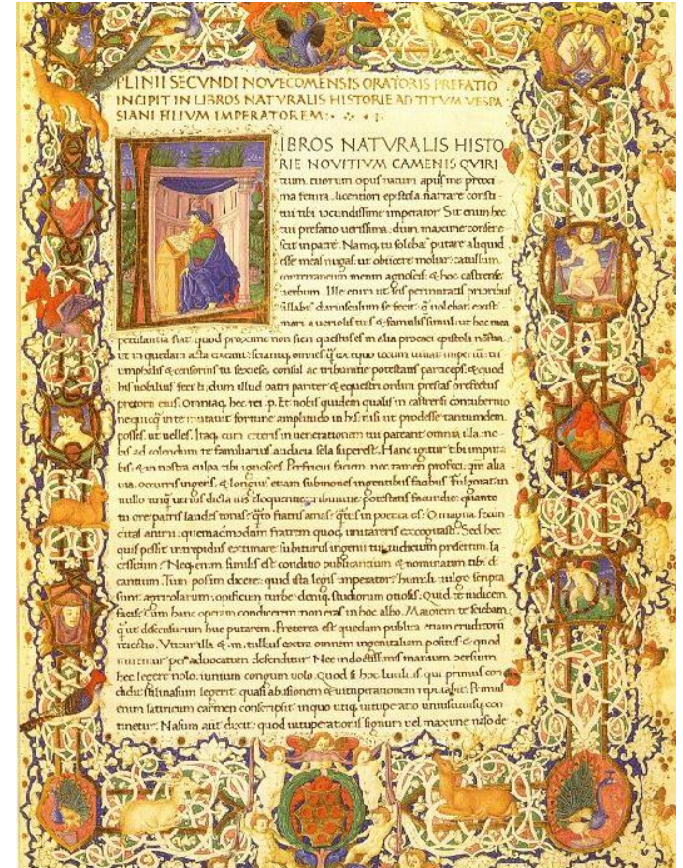 PLINII SECVNDI NOVECOMENSIS ORATORIS PREFATIO
INCIPIT IN LIBROS NATVRALIS HISTORIE AD TITVM VESPA
SIANI FILIVM IMPERATOREM
IBROS NATVRALIS HISTO
RIE NOVITIVM CAMENIS QVIRI
tium tuorum opus natum apud me proxi
ma fetura licentiori epistola narrare consti
tui tibi iocundissime imperator. Sit enim hec
tui prefatio uerissima: dum maximo
in patre. Namq; tu solebas putare aliquid
esse meas nugas: ut obiicere moliar catullum
meum agnoscis & hoc castrense
uerbum. Ille enim ut scis permutatis prioribus
se fecit: q̃ uolebat
tuis & famulis simul: ut hec mea
petulantia fiat: quod proxime non fieri questus es in alia procaci epistola nostra
ut in quedam acta exeant. Sciantq; omnes q̃ ex equo tecum uiuat imperium:
& censorius tu sexiesq; consul ac tribunitie potestatis particeps: & quod
his nobilius fecisti, dum illud patri pariter & equestri ordini prestas prefectus
pretorii eius. Omniaq; hec rei .p. Et nobis quidem qualis in castrensi contubernio
nequicq̃ in te mutauit fortune amplitudo in his: nisi ut prodesse tantumdem
posses: ut uelles. Itaq; cum ceteris in uenerationem tui pateant omnia illa: no
bis ad colendum te familiarius audacia sola superest. Hanc igitur tibi imputa
bis: & in nostra culpa tibi ignosces. Perfricui faciem nec tamen profeci: que alia
uia occurris ingens: & longius etiam submoues ingentibus facibus. Fulgorat in
nullo unq̃ uerius dicta uis eloquentie: tribunitie potestatis facundie: quanto
tu ore patris laudes tonas: q̃to fratris amas: q̃tus in poetica es. O magna fecun
ditas animi: quemadmodum fratrem quoq; imitareris excogitasti. Sed hec
quis possit intrepidus extimare: subiturus ingenii tui iudicium presertim la
cessitum? Neq; enim similis est conditio publicantium & nominatim tibi di
cantium. Tum possim dicere: quid ista legis imperator? humili uulgo scripta
sunt: agricolarum: opificum turbe: deniq; studiorum otiosis. Quid te iudicem
facis? cum hanc operam condicerem non eras in hoc albo. Maiorem te sciebam:
q̃ ut descensurum huc putarem. Preterea est quedam publica etiam eruditorum
reiectio. Vtitur illa & .m. tullius extra omnem ingenii aleam positus: & quod
miremur per aduocatum defenditur. Nec indoctissimis manium persium
hec legere nolo: iunium congum uolo. Quod si hoc lucilius qui primus con
didit stili nasum
enim latinorum carmen conscripsit
tinetur. Nasum aut dixit: quod uituperatoris signum uel maxime naso de